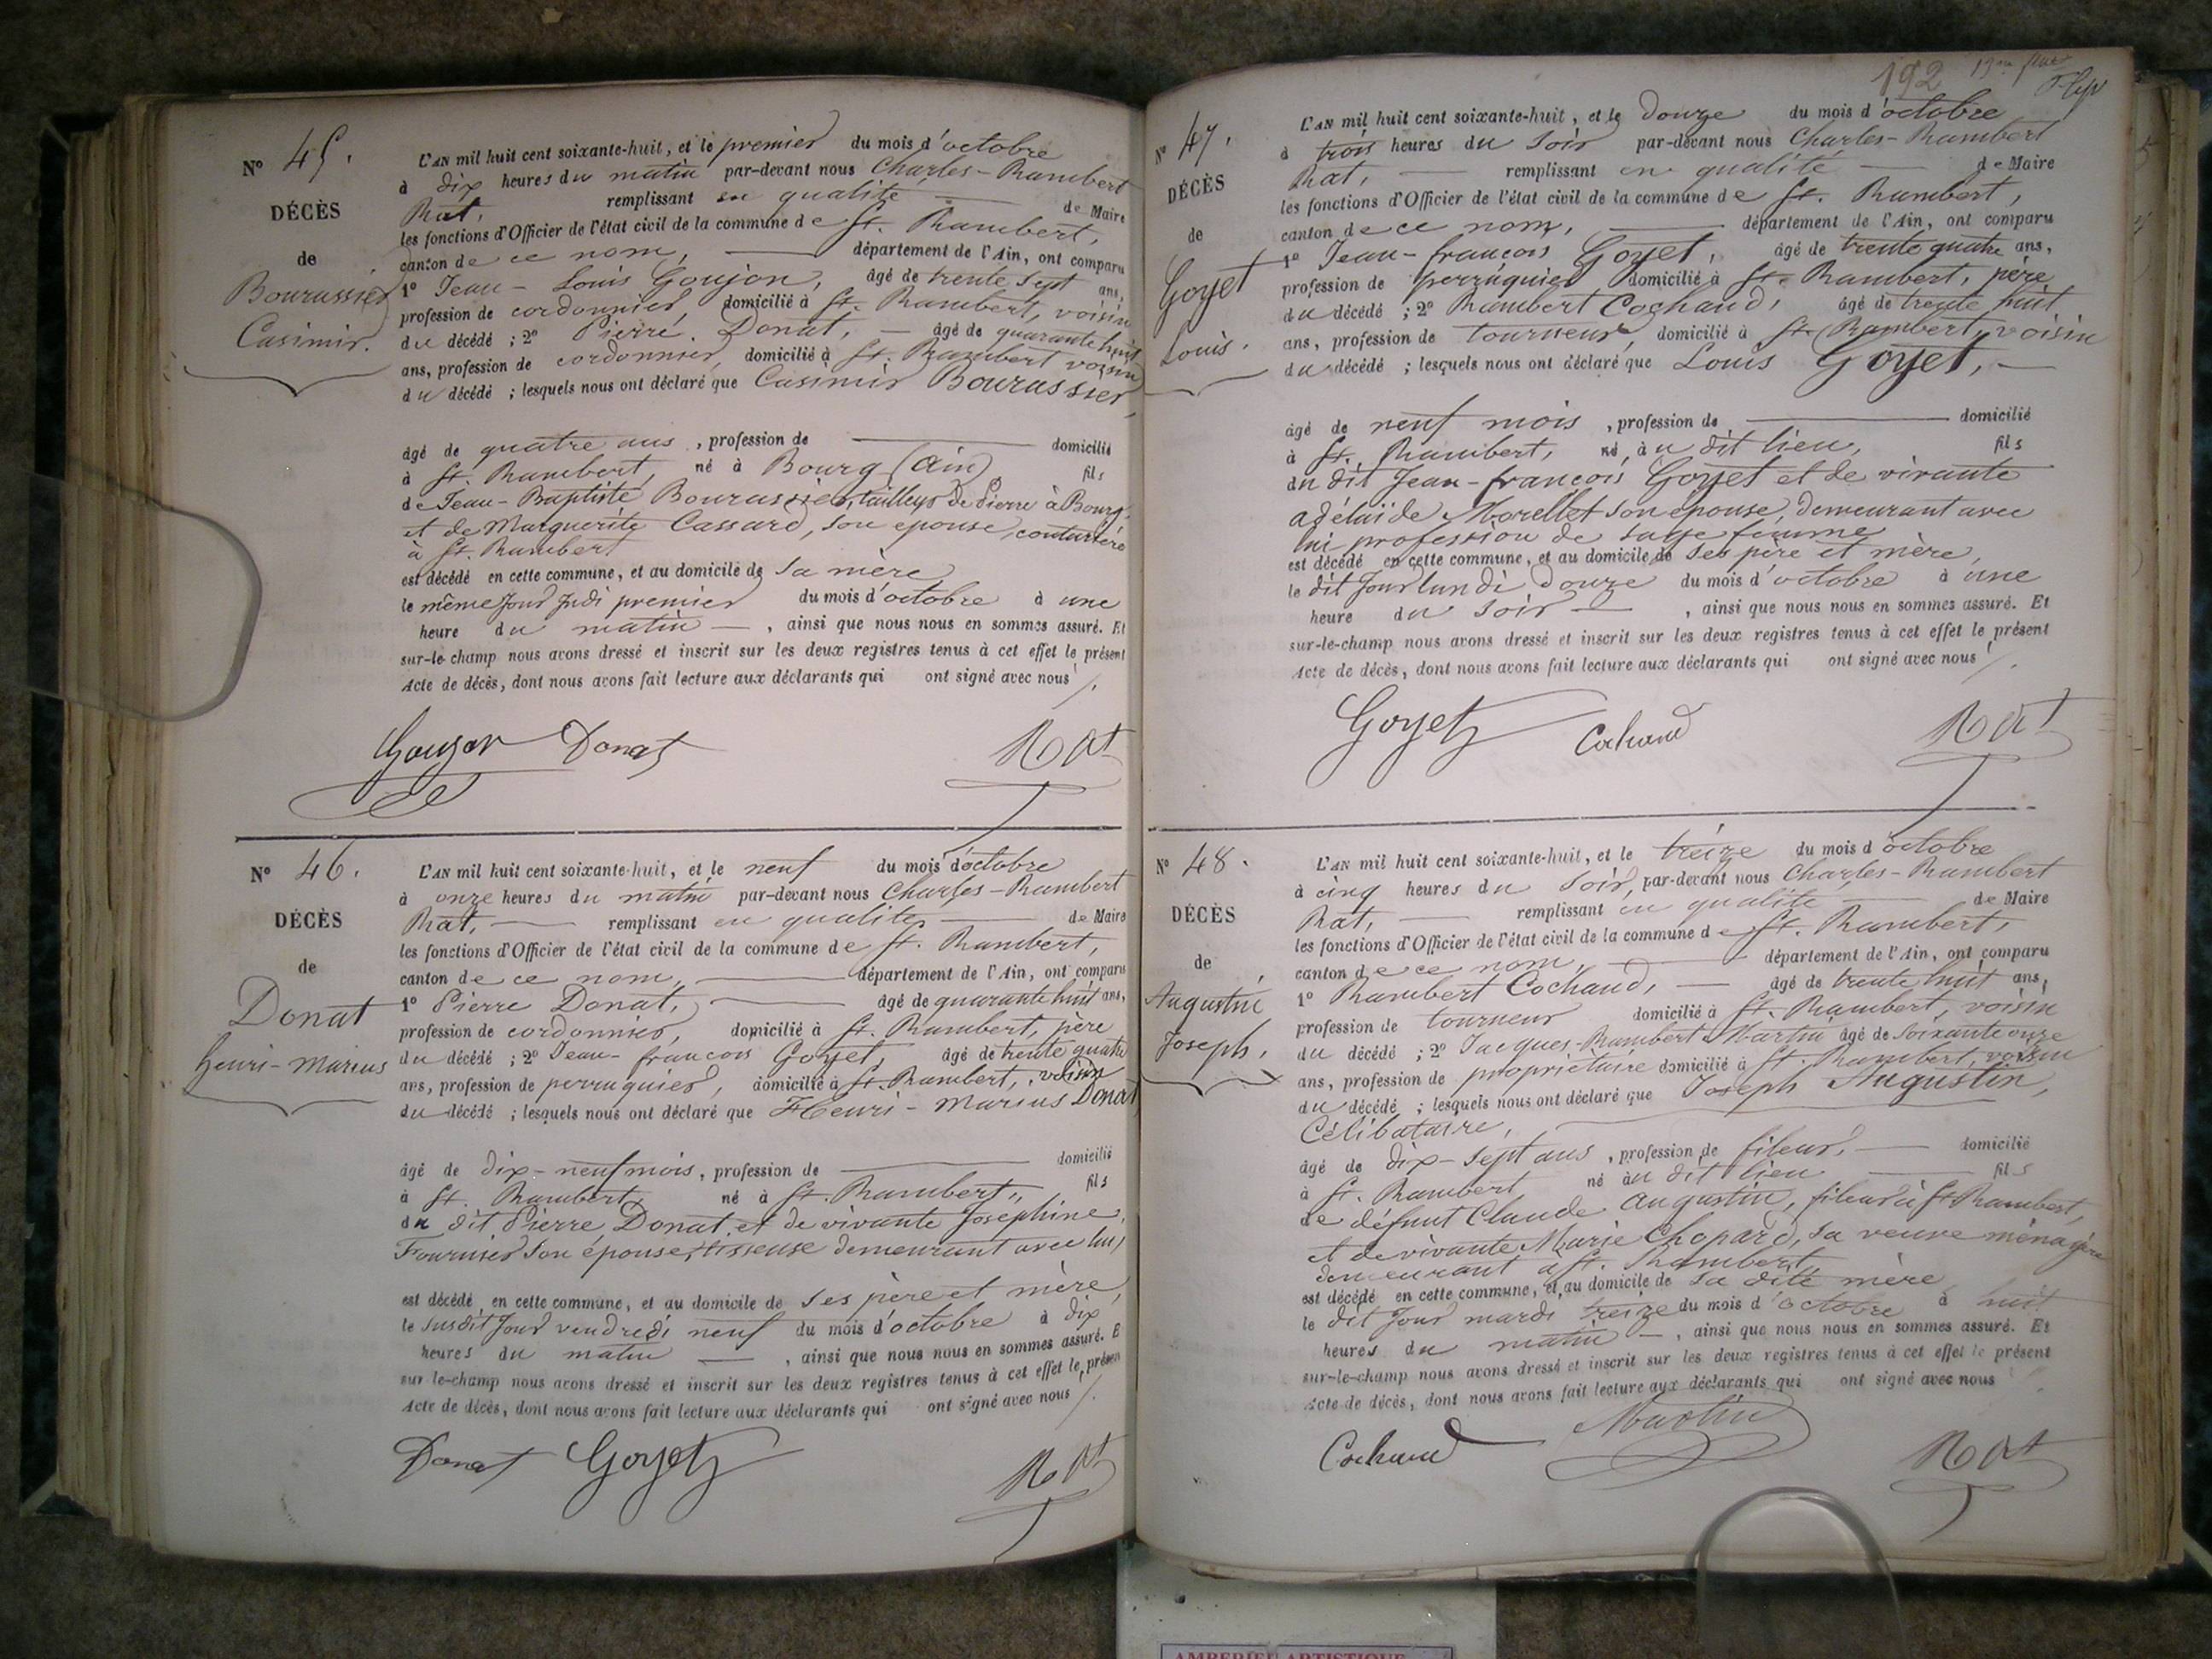 N° 45.
DÉCÈS
de
Bourassier
Casimir.
L'AN mil huit cent soixante-huit, et le premier du mois d'octobre
à dix heures du matin par-devant nous Charles-Rambert
Rat, remplissant en qualité de Maire
les fonctions d'Officier de l'état civil de la commune de St. Rambert,
canton de ce nom, département de l'Ain, ont comparu
1° Jean-Louis Goujon, âgé de trente sept ans,
profession de cordonnier, domicilié à St. Rambert, voisin
du décédé ; 2° Pierre Donat, âgé de quarante huit
ans, profession de cordonnier, domicilié à St. Rambert voisin
du décédé ; lesquels nous ont déclaré que Casimir Bourassier,
âgé de quatre ans, profession de domicilié
à St. Rambert, né à Bourg (Ain) fils
de Jean-Baptiste Bourassier, tailleur de pierre à Bourg,
et de Marguerite Cassard, son épouse, couturière
à St. Rambert
est décédé en cette commune, et au domicile de sa mère
le même jour jeudi premier du mois d'octobre à une
heure du matin, ainsi que nous nous en sommes assuré. Et
sur-le-champ nous avons dressé et inscrit sur les deux registres tenus à cet effet le présent
Acte de décès, dont nous avons fait lecture aux déclarants qui ont signé avec nous
Goujon Donat Rat
N° 46.
DÉCÈS
de
Donat
henri-marius
L'AN mil huit cent soixante-huit, et le neuf du mois d'octobre
à onze heures du matin par-devant nous Charles-Rambert
Rat, remplissant en qualité de Maire
les fonctions d'Officier de l'état civil de la commune de St. Rambert,
canton de ce nom, département de l'Ain, ont comparu
1° Pierre Donat, âgé de quarante huit ans,
profession de cordonnier, domicilié à St. Rambert, père
du décédé ; 2° Jean-françois Goyet, âgé de trente quatre
ans, profession de perruquier, domicilié à St. Rambert, voisin
du décédé ; lesquels nous ont déclaré que Henri-Marius Donat,
âgé de dix-neuf mois, profession de domicilié
à St. Rambert, né à St. Rambert, fils
du dit Pierre Donat et de vivante Josephine
Fournier son épouse, tisseuse demeurant avec lui,
est décédé en cette commune, et au domicile de ses père et mère,
le susdit jour vendredi neuf du mois d'octobre à dix
heures du matin, ainsi que nous nous en sommes assuré. E
sur le-champ nous avons dressé et inscrit sur les deux registres tenus à cet effet le présen
Acte de décès, dont nous avons fait lecture aux déclarants qui ont signé avec nous
Donat Goyet Rat
192
N° 47.
DÉCÈS
de
Goyet
Louis.
L'AN mil huit cent soixante-huit, et le douze du mois d'octobre
à trois heures du soir par-devant nous Charles-Rambert
Rat, remplissant en qualité de Maire
les fonctions d'Officier de l'état civil de la commune de St. Rambert,
canton de ce nom, département de l'Ain, ont comparu
1° Jean-françois Goyet, âgé de trente quatre ans,
profession de perruquier domicilié à St. Rambert, père
du décédé ; 2° Rambert Cochaud, âgé de trente huit
ans, profession de tourneur, domicilié à St. Rambert, voisin
du décédé ; lesquels nous ont déclaré que Louis Goyet,
âgé de neuf mois, profession de domicilié
à St. Rambert, né au dit lieu, fils
du dit Jean-françois Goyet et de vivante
adélaïde Morellet son épouse, demeurant avec
lui profession de sage femme
est décédé en cette commune, et au domicile de ses père et mère,
le dit jour lundi douze du mois d'octobre à une
heure du soir, ainsi que nous nous en sommes assuré. Et
sur-le-champ nous avons dressé et inscrit sur les deux registres tenus à cet effet le présent
Acte de décès, dont nous avons fait lecture aux déclarants qui ont signé avec nous
Goyet Cochaud Rat
N° 48.
DÉCÈS
de
Augustin
Joseph.
L'AN mil huit cent soixante-huit, et le treize du mois d'octobre
à cinq heures du soir, par-devant nous Charles-Rambert
Rat, remplissant en qualité de Maire
les fonctions d'Officier de l'état civil de la commune de St. Rambert,
canton de ce nom, département de l'Ain, ont comparu
1° Rambert Cochaud, âgé de trente huit ans,
profession de tourneur domicilié à St. Rambert, voisin
du décédé ; 2° Jacques-Rambert Martin âgé de soixante onze
ans, profession de propriétaire domicilié à St. Rambert, voisin
du décédé ; lesquels nous ont déclaré que Joseph Augustin,
Célibataire,
âgé de dix-sept ans, profession de fileur, domicilié
à St. Rambert né au dit lieu fils
de défunt Claude Augustin, fileur à St Rambert,
et de vivante Marie Chopard, sa veuve ménagère
demeurant à St. Rambert,
est décédé en cette commune, et au domicile de sa dite mère
le dit jour mardi treize du mois d'octobre à huit
heures du matin, ainsi que nous nous en sommes assuré. Et
sur-le-champ nous avons dressé et inscrit sur les deux registres tenus à cet effet le présent
Acte de décès, dont nous avons fait lecture aux déclarants qui ont signé avec nous
Cochaud Martin Rat
AMBERIEU ARTISTIQUE